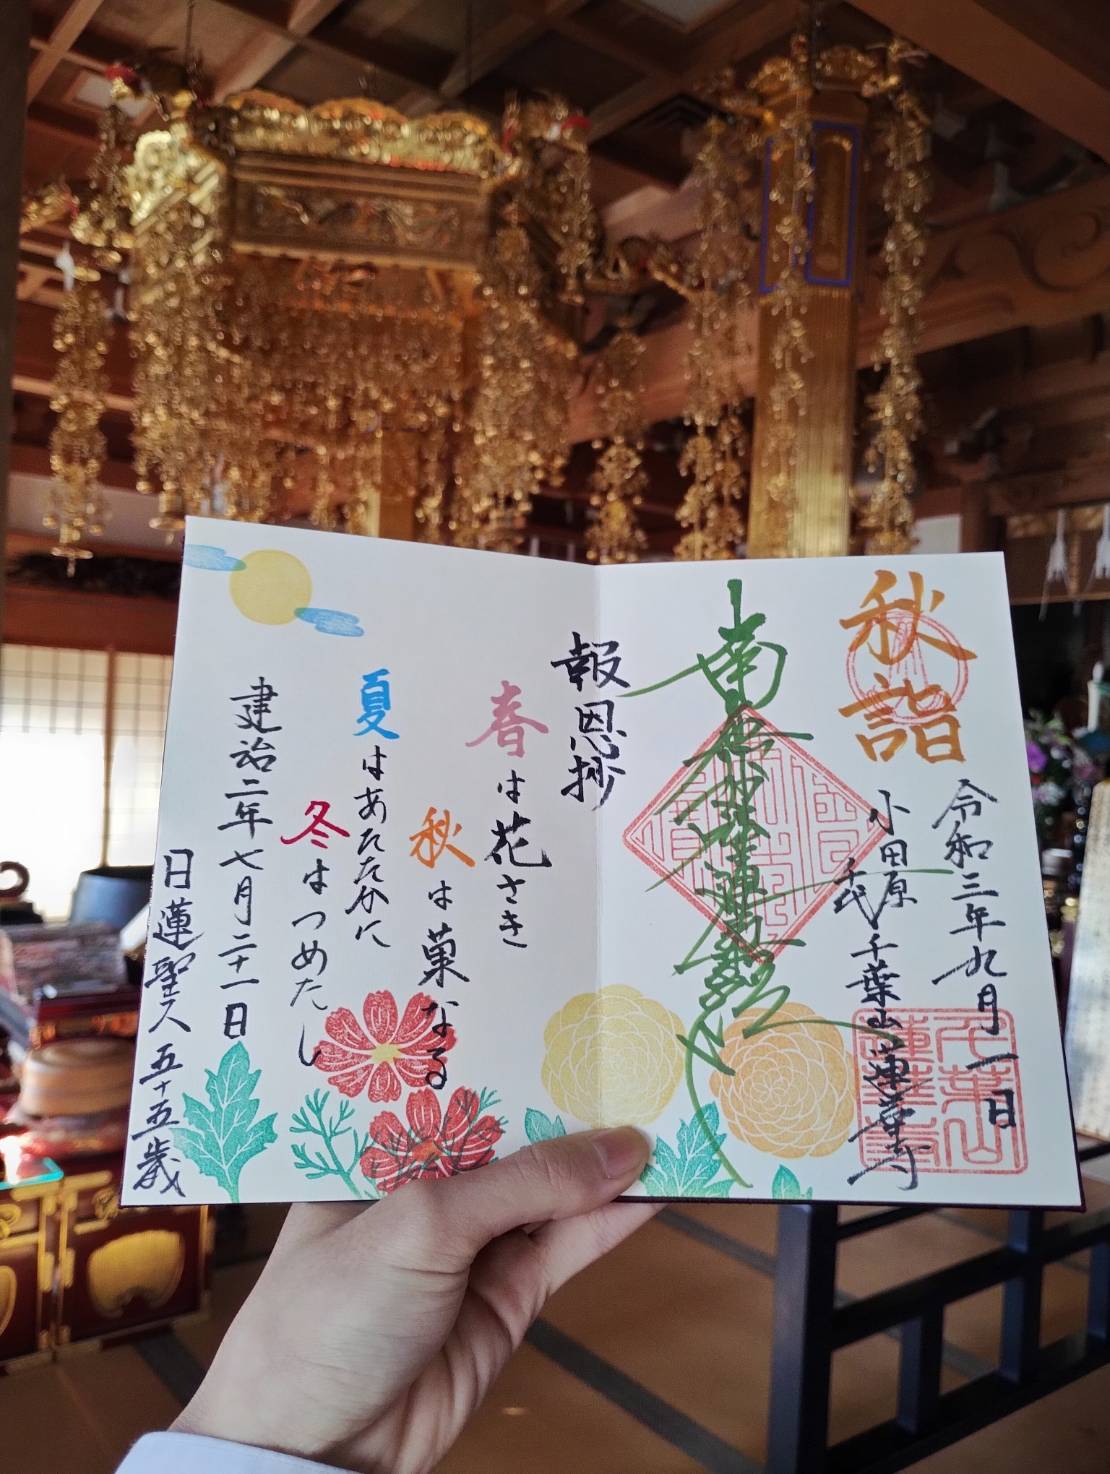 秋詣
令和三年九月一日
小田原
千代
千葉山蓮華寺
千葉山蓮華寺
南無妙法蓮華経
報恩抄
春は花さき
秋は菓なる
夏はあたたかに
冬はつめたし
建治二年七月二十一日
日蓮聖人 五十五歳